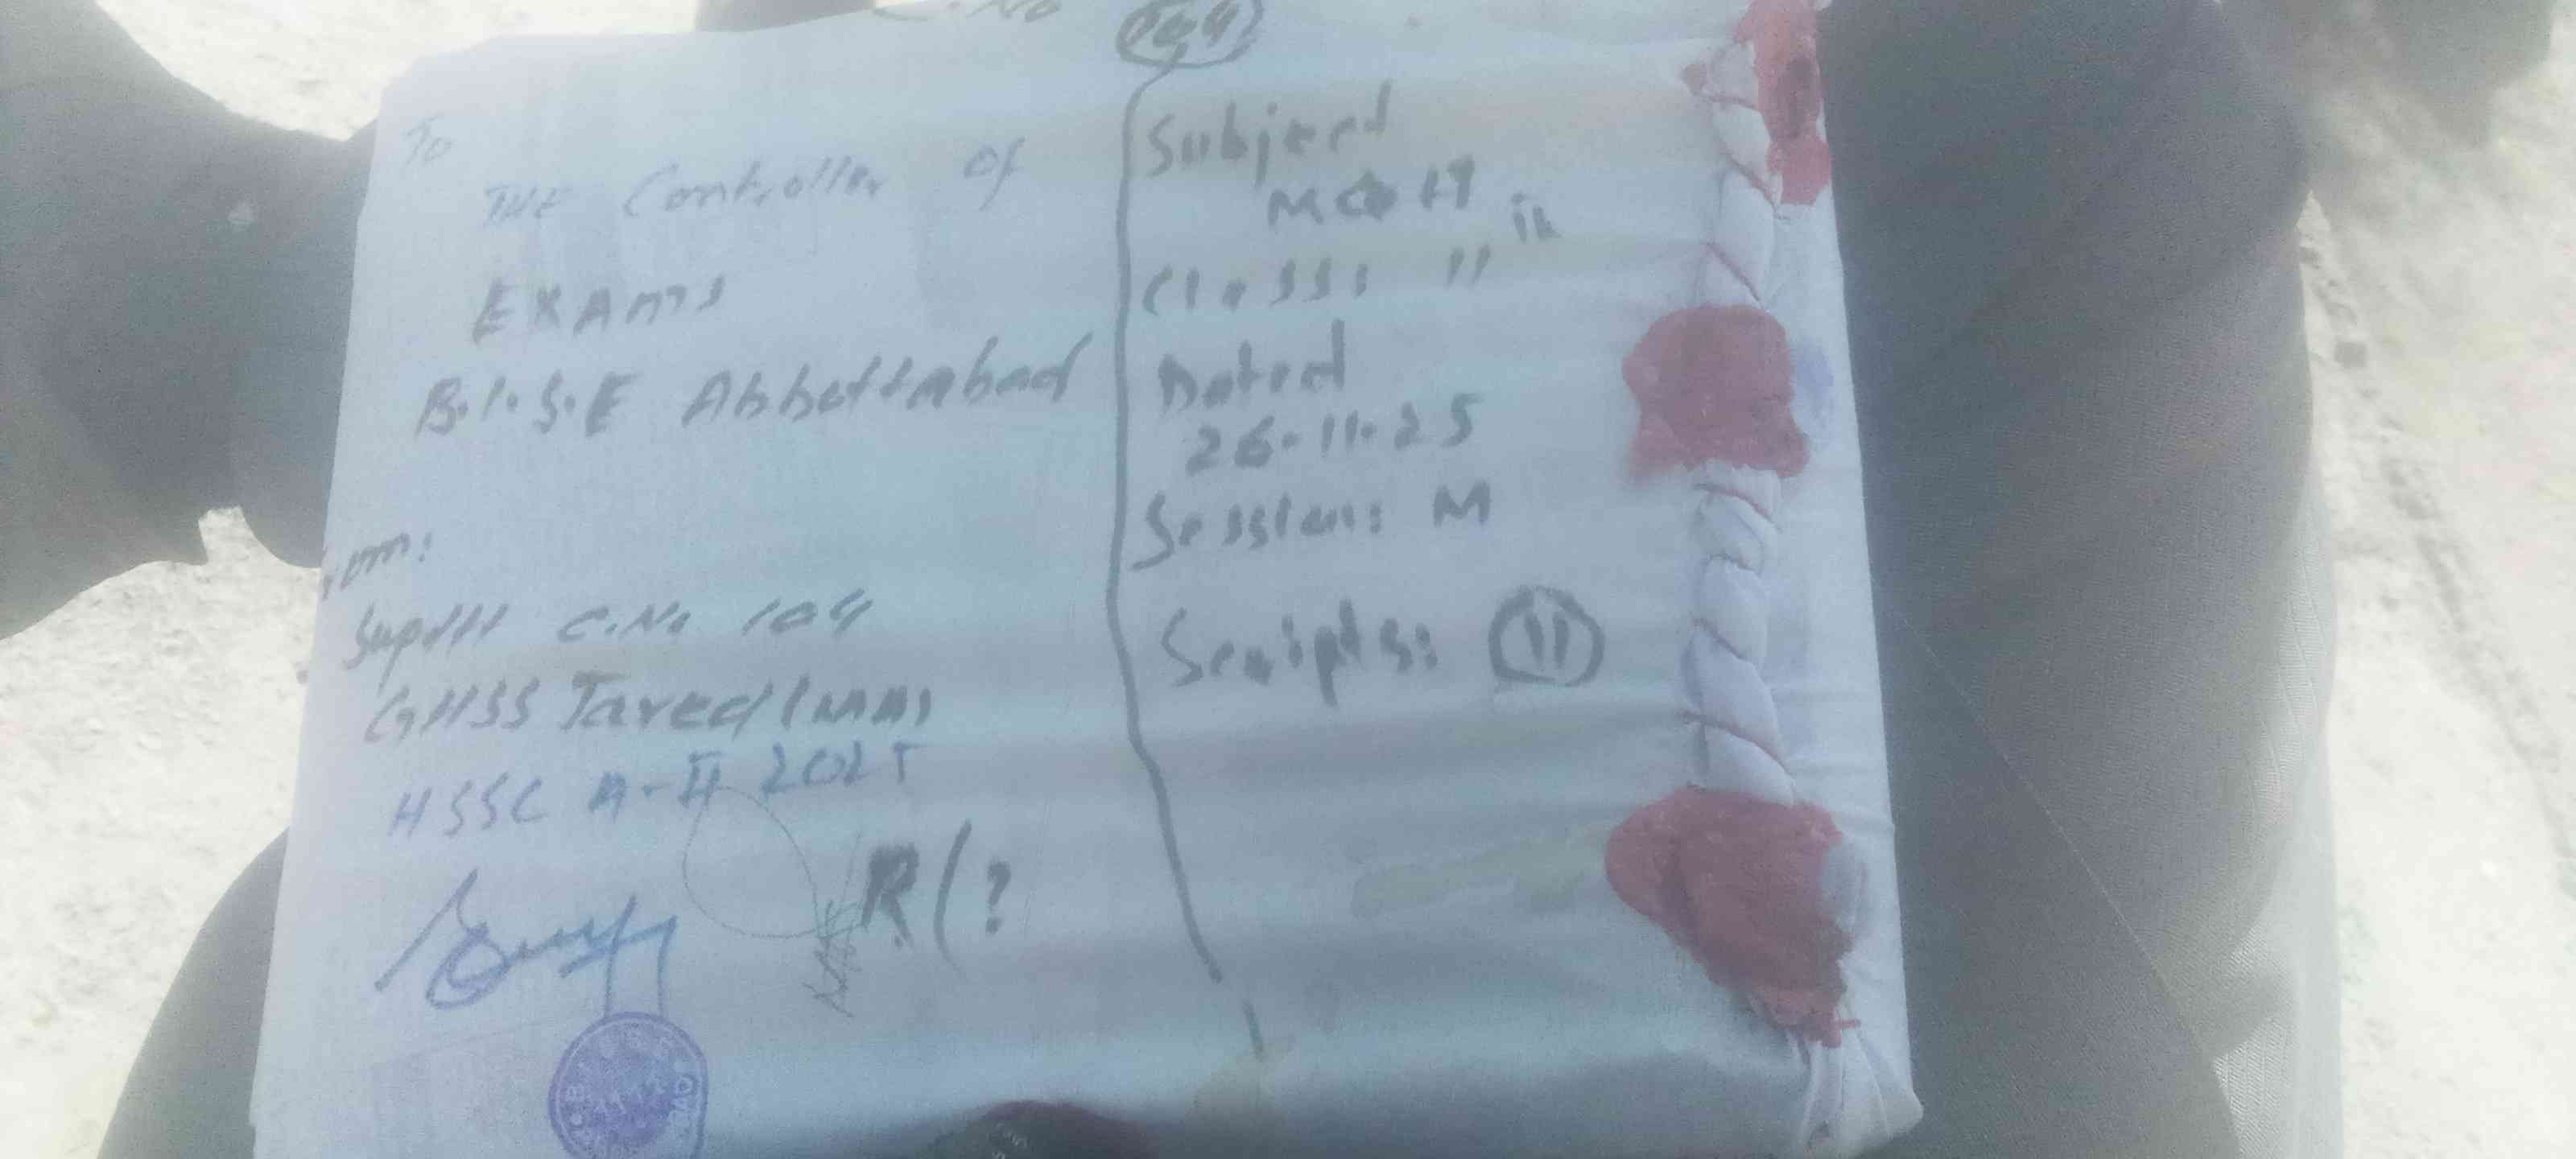 C.No 104
To
THE Controller of
EXAMS
B.I.S.E Abbottabad
rom:
Supdtt C.No 104
GHSS Jared (MA)
HSSC A-II 2025
R(?
Subject
Math
Class: 11th
Dated
26-11-25
Session: M
Scripts: 11